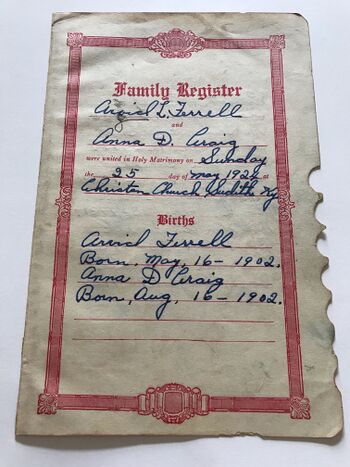 Family Register
Arvid L. Terrell
and
Anna D. Craig
were united in Holy Matrimony on Sunday
the 25 day of May 1924 at
Christen Church Sudith Ky
Births
Arvid Terrell
Born, May, 16 - 1902.
Anna D Craig
Born, Aug, 16 - 1902.